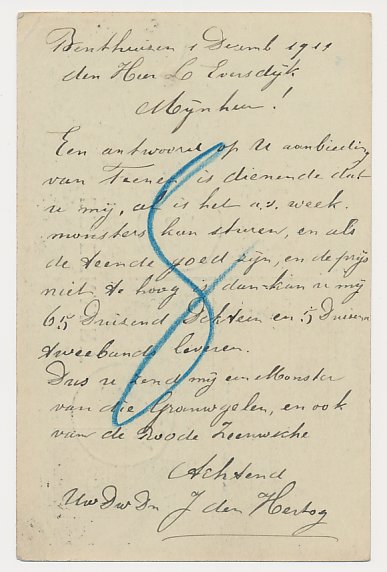 Benthuizen 1 Decemb 1911
den Heer L Eversdijk
Mijnheer!
Een antwoord op U aanbieding
van Teenen is dienende dat
u mij, al is het a.s. week.
monsters kan sturen, en als
de teende goed zijn, en de prijs
niet te hoog is dan kan u mij
65 Duizend en 5 Duizen
tweebands leveren.
Dus u zend mij een Monster
van die Graauwgelen, en ook
van de Roode Zeeuwsche
Achtend
Uw Dw Dn J den Hertog
8